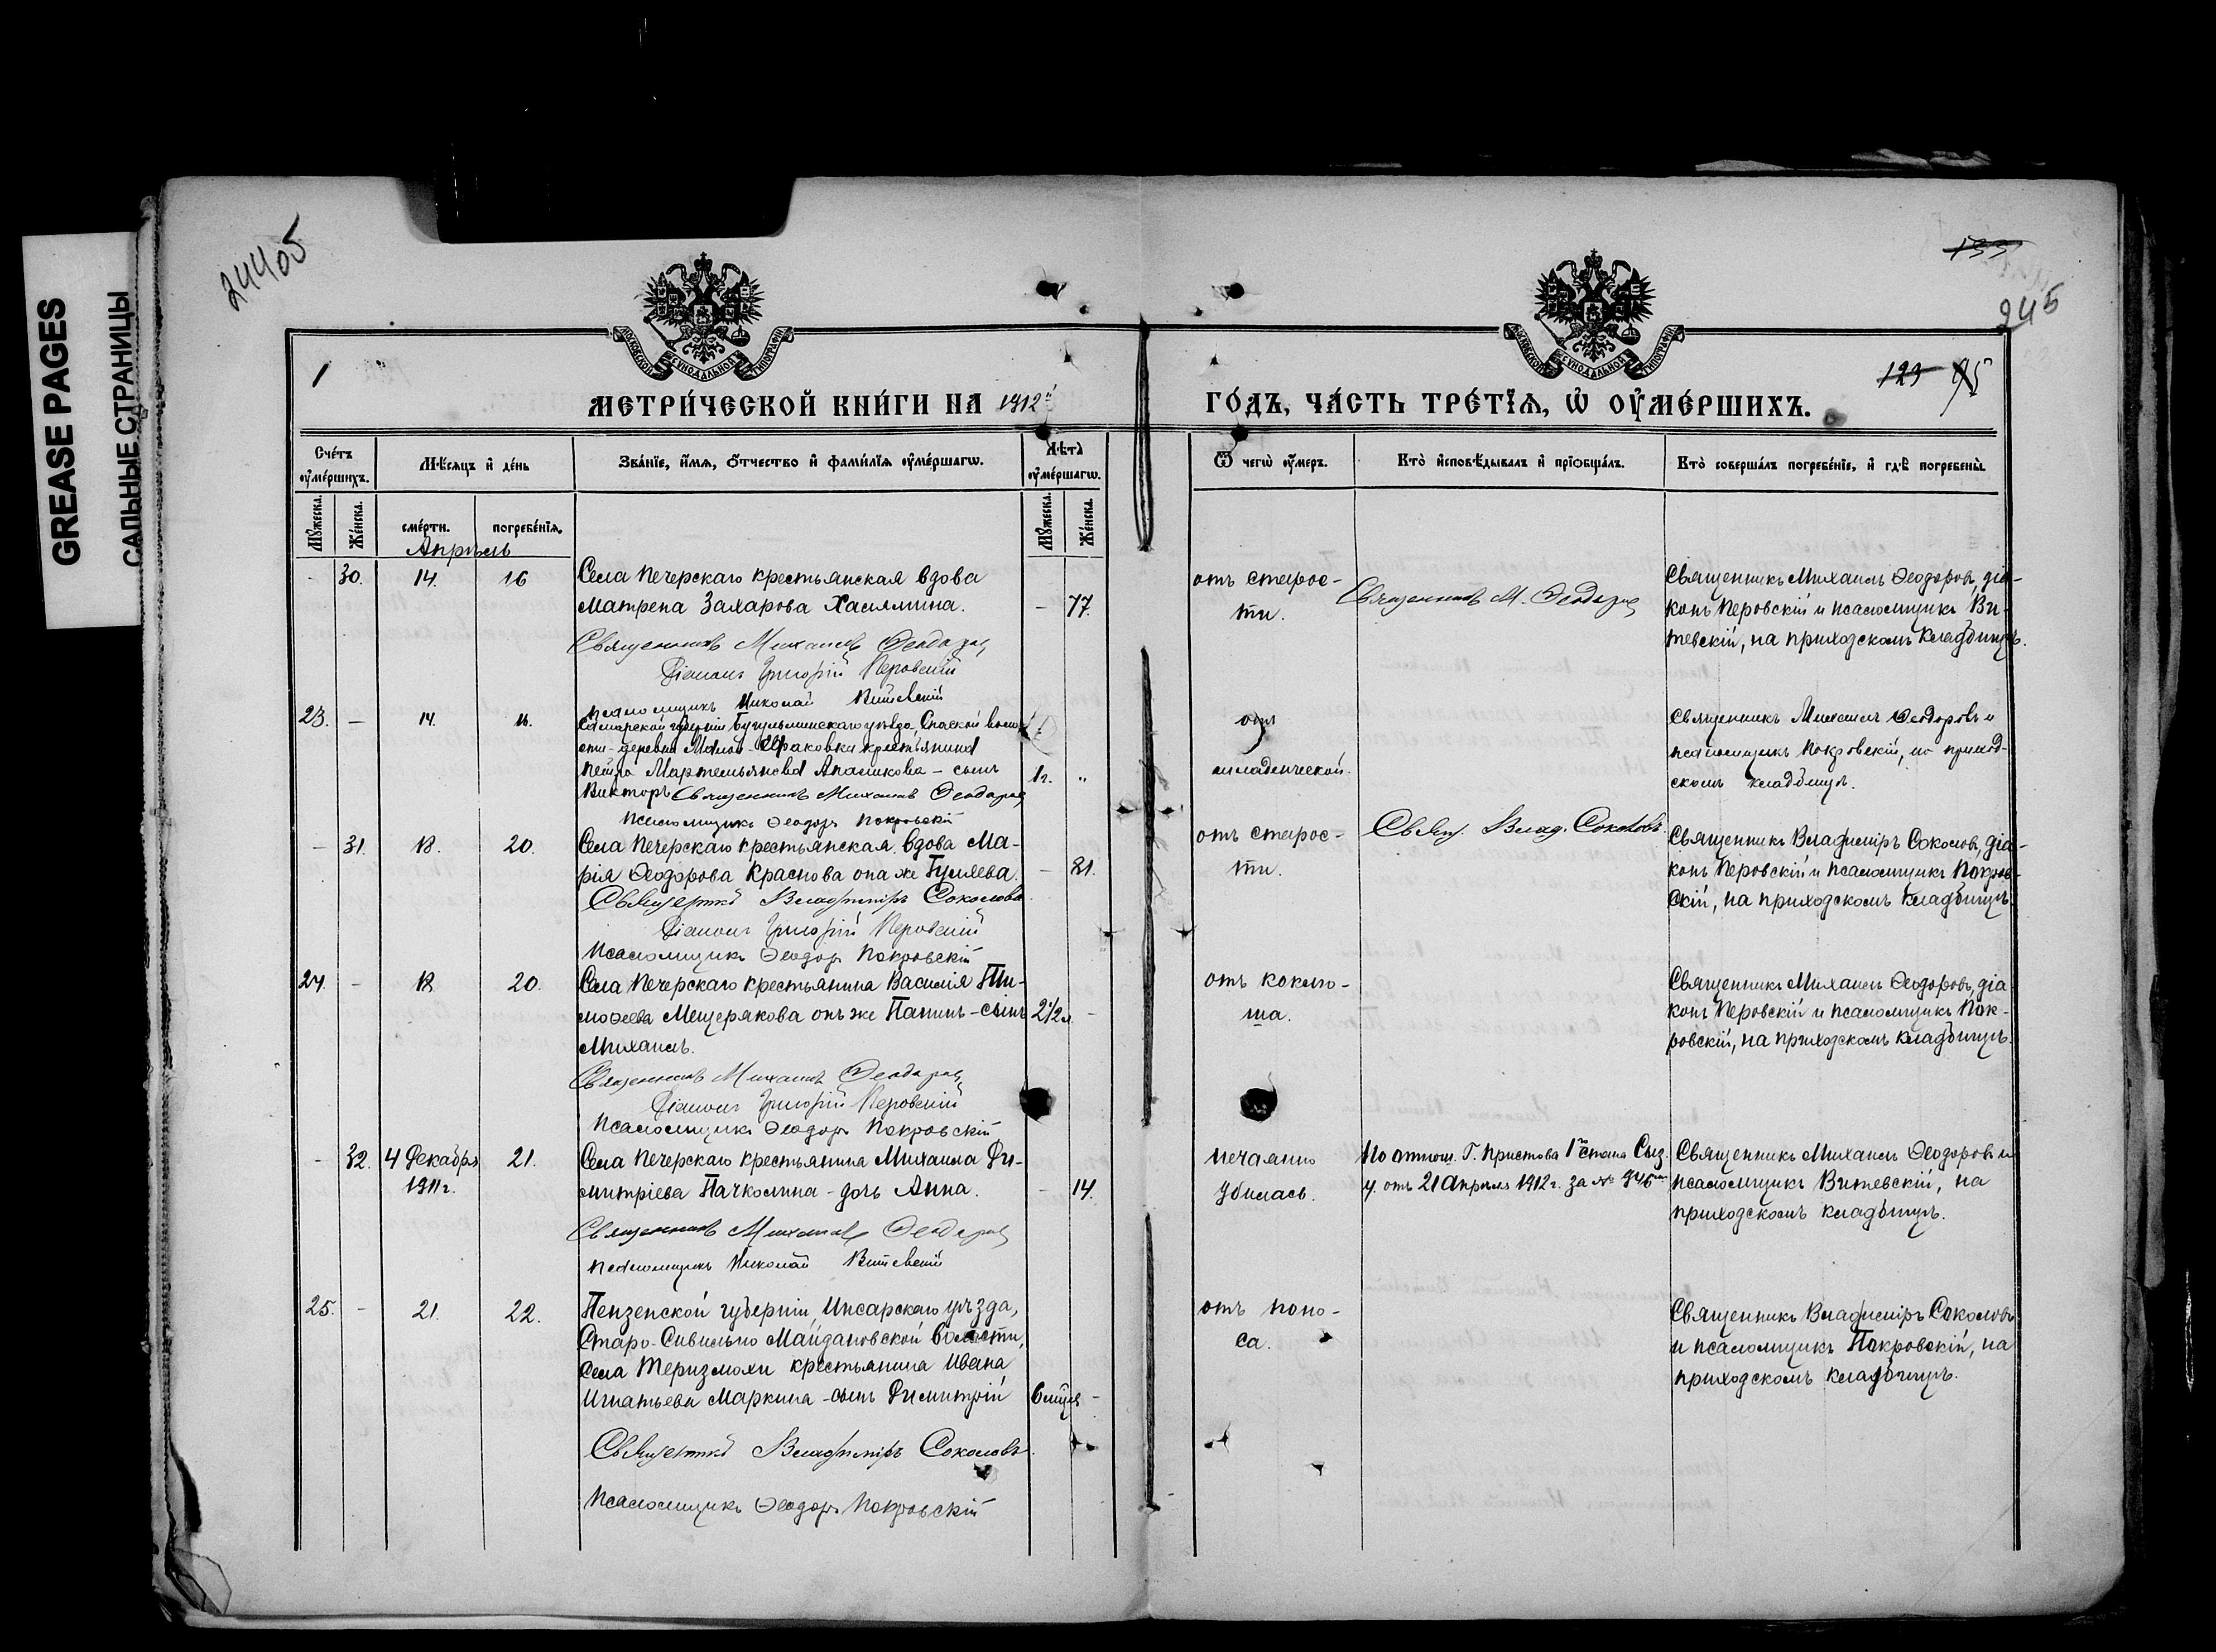 GREASE PAGES
САЛЬНЫЕ СТРАНИЦЫ
24405
133
245
МОСКОВСКОЙ СУНОДАЛЬНОЙ ТИПОГРАФІИ
МОСКОВСКОЙ СУНОДАЛЬНОЙ ТИПОГРАФІИ
123 95
МЕТРИ́ЧЕСКОЙ КНИ́ГИ НА 1912й ГО́ДЪ, ЧА́СТЬ ТРЕ́ТЇѦ, Ѡ ОУ҆МЕ́РШИХЪ.
Сче́тъ оу҆ме́ршихъ.
Мѣ́сяцъ и҆ де́нь
Зва́нїе, и҆́мѧ, ѻ҆́тчество и҆ фами́лїѧ оу҆ме́ршагѡ.
Лѣ̀та оу҆ме́ршагѡ.
Ѿ чегѡ̀ оу҆́меръ.
Кто̀ и҆сповѣ́дывалъ и҆ прїѻбща́лъ.
Кто̀ соверша́лъ погребе́нїе, и҆ гдѣ̀ погребены̀.
Мꙋ́жеска.
Же́нска.
сме́рти.
погребе́нїѧ.
Мꙋ́жеска.
Же́нска.
Апрѣль
- 30. 14. 16 Села Печерскаго крестьянская вдова
Матрена Захарова Хасялина. - 77.
Священникъ Михаилъ Ѳеодоровъ
Діаконъ Григорій Перовскій
Псаломщикъ Николай Витевскій
отъ старос-
ти.
Священникъ М. Ѳеодоровъ
Священникъ Михаилъ Ѳеодоровъ, діа-
конъ Перовскій и псаломщикъ Ви-
тевскій, на приходскомъ кладбищѣ.
23. - 14. 16. Самарской губерніи Бугульминскаго уѣзда, Спаской волос-
ти деревни крестьянина
Петра Мартемьянова Апаликова - сынъ 1г. „
Викторъ Священникъ Михаилъ Ѳеодоровъ
Псаломщикъ Ѳеодоръ Покровскій
отъ
младенческой.
Священникъ Михаилъ Ѳеодоровъ и
псаломщикъ Покровскій, на приход-
скомъ кладбищѣ.
- 31. 18. 20. Села Печерскаго крестьянская вдова Ма-
рія Ѳеодорова Краснова она же Гуляева. - 81.
Священникъ Владиміръ Соколовъ
Діаконъ Григорій Перовскій
Псаломщикъ Ѳеодоръ Покровскій
отъ старос-
ти.
Свящ. Влад. Соколовъ.
Священникъ Владиміръ Соколовъ, діа-
конъ Перовскій и псаломщикъ Покров-
скій, на приходскомъ кладбищѣ.
24. - 18. 20. Села Печерскаго крестьянина Василія Ти-
моѳеева Мещерякова онъ же Папинъ - сынъ 2 1/2 л. -
Михаилъ.
Священникъ Михаилъ Ѳеодоровъ
Діаконъ Григорій Перовскій
Псаломщикъ Ѳеодоръ Покровскій
отъ коклю-
ша.
Священникъ Михаилъ Ѳеодоровъ, діа-
конъ Перовскій и псаломщикъ Пок-
ровскій, на приходскомъ кладбищѣ.
- 32. 4 Декабря 21. Села Печерскаго крестьянина Михаила Ди-
1911г. митріева Пачколина - дочь Анна. - 14.
Священникъ Михаилъ Ѳеодоровъ
Псаломщикъ Николай Витевскій
нечаянно
убилась.
По отнош. Г. Пристава 1го стана Сыз.
у. отъ 21 Апрѣля 1912 г. за №
Священникъ Михаилъ Ѳеодоровъ и
псаломщикъ Витевскій, на
приходскомъ кладбищѣ.
25. - 21. 22. Пензенской губерніи Инсарскаго уѣзда,
Старо-Сивильно Майдановской волости,
села Теризмоли крестьянина Ивана
Игнатьева Маркина - сынъ Димитрій 6 мѣс. -
Священникъ Владиміръ Соколовъ
Псаломщикъ Ѳеодоръ Покровскій
отъ поно-
са.
Священникъ Владиміръ Соколовъ
и псаломщикъ Покровскій, на
приходскомъ кладбищѣ.